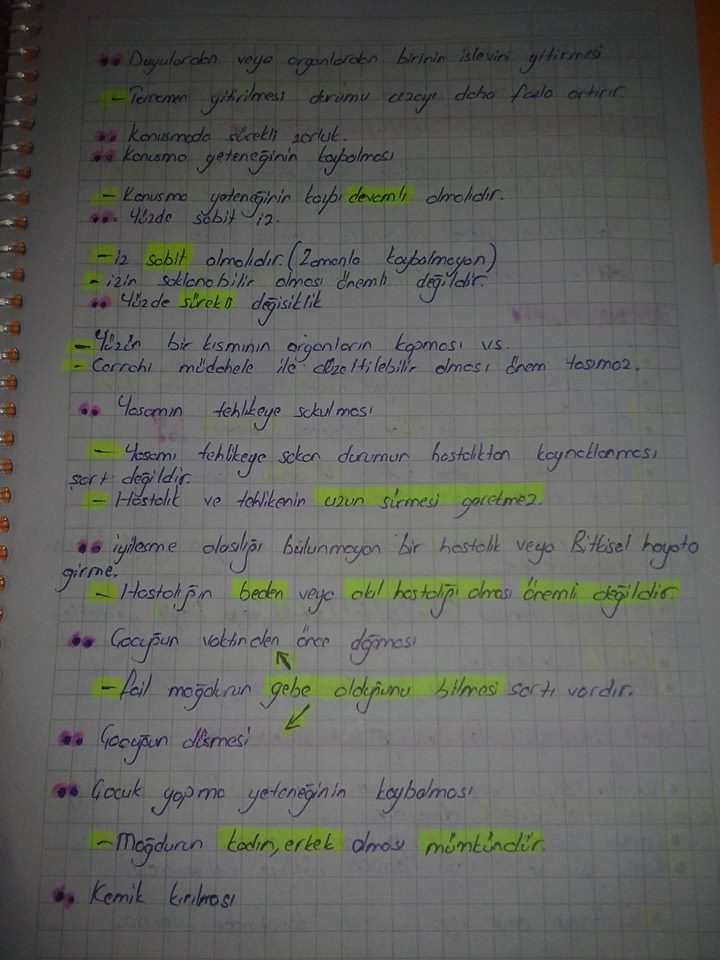 •• Duyulardan veya organlardan birinin işlevini yitirmesi
- Tamamen yitirilmesi durumu cezayı daha fazla artırır
•• Konuşmada sürekli zorluk.
•• Konuşma yeteneğinin kaybolması
- Konuşma yeteneğinin kaybı devamlı olmalıdır.
•• Yüzde sabit iz.
- iz sabit olmalıdır. (Zamanla kaybolmayan)
- izin saklanabilir olması önemli değildir.
•• Yüzde sürekli değişiklik
- Yüzün bir kısmının organların kopması vs.
- Cerrahi müdahele ile düzeltilebilir olması önem taşımaz.
•• Yaşamın tehlikeye sokulması
- Yaşamı tehlikeye sokan durumun hastalıktan kaynaklanması
şart değildir.
- Hastalık ve tehlikenin uzun sürmesi gerekmez.
•• iyileşme olasılığı bulunmayan bir hastalık veya Bitkisel hayata
girme.
- Hastalığın beden veya akıl hastalığı olması önemli değildir.
•• Çocuğun vaktinden önce doğması
- fail mağdurun gebe olduğunu bilmesi şartı vardır.
•• Çocuğun düşmesi
•• Çocuk yapma yeteneğinin kaybolması
- Mağdurun kadın, erkek olması mümkündür.
•• Kemik kırılması